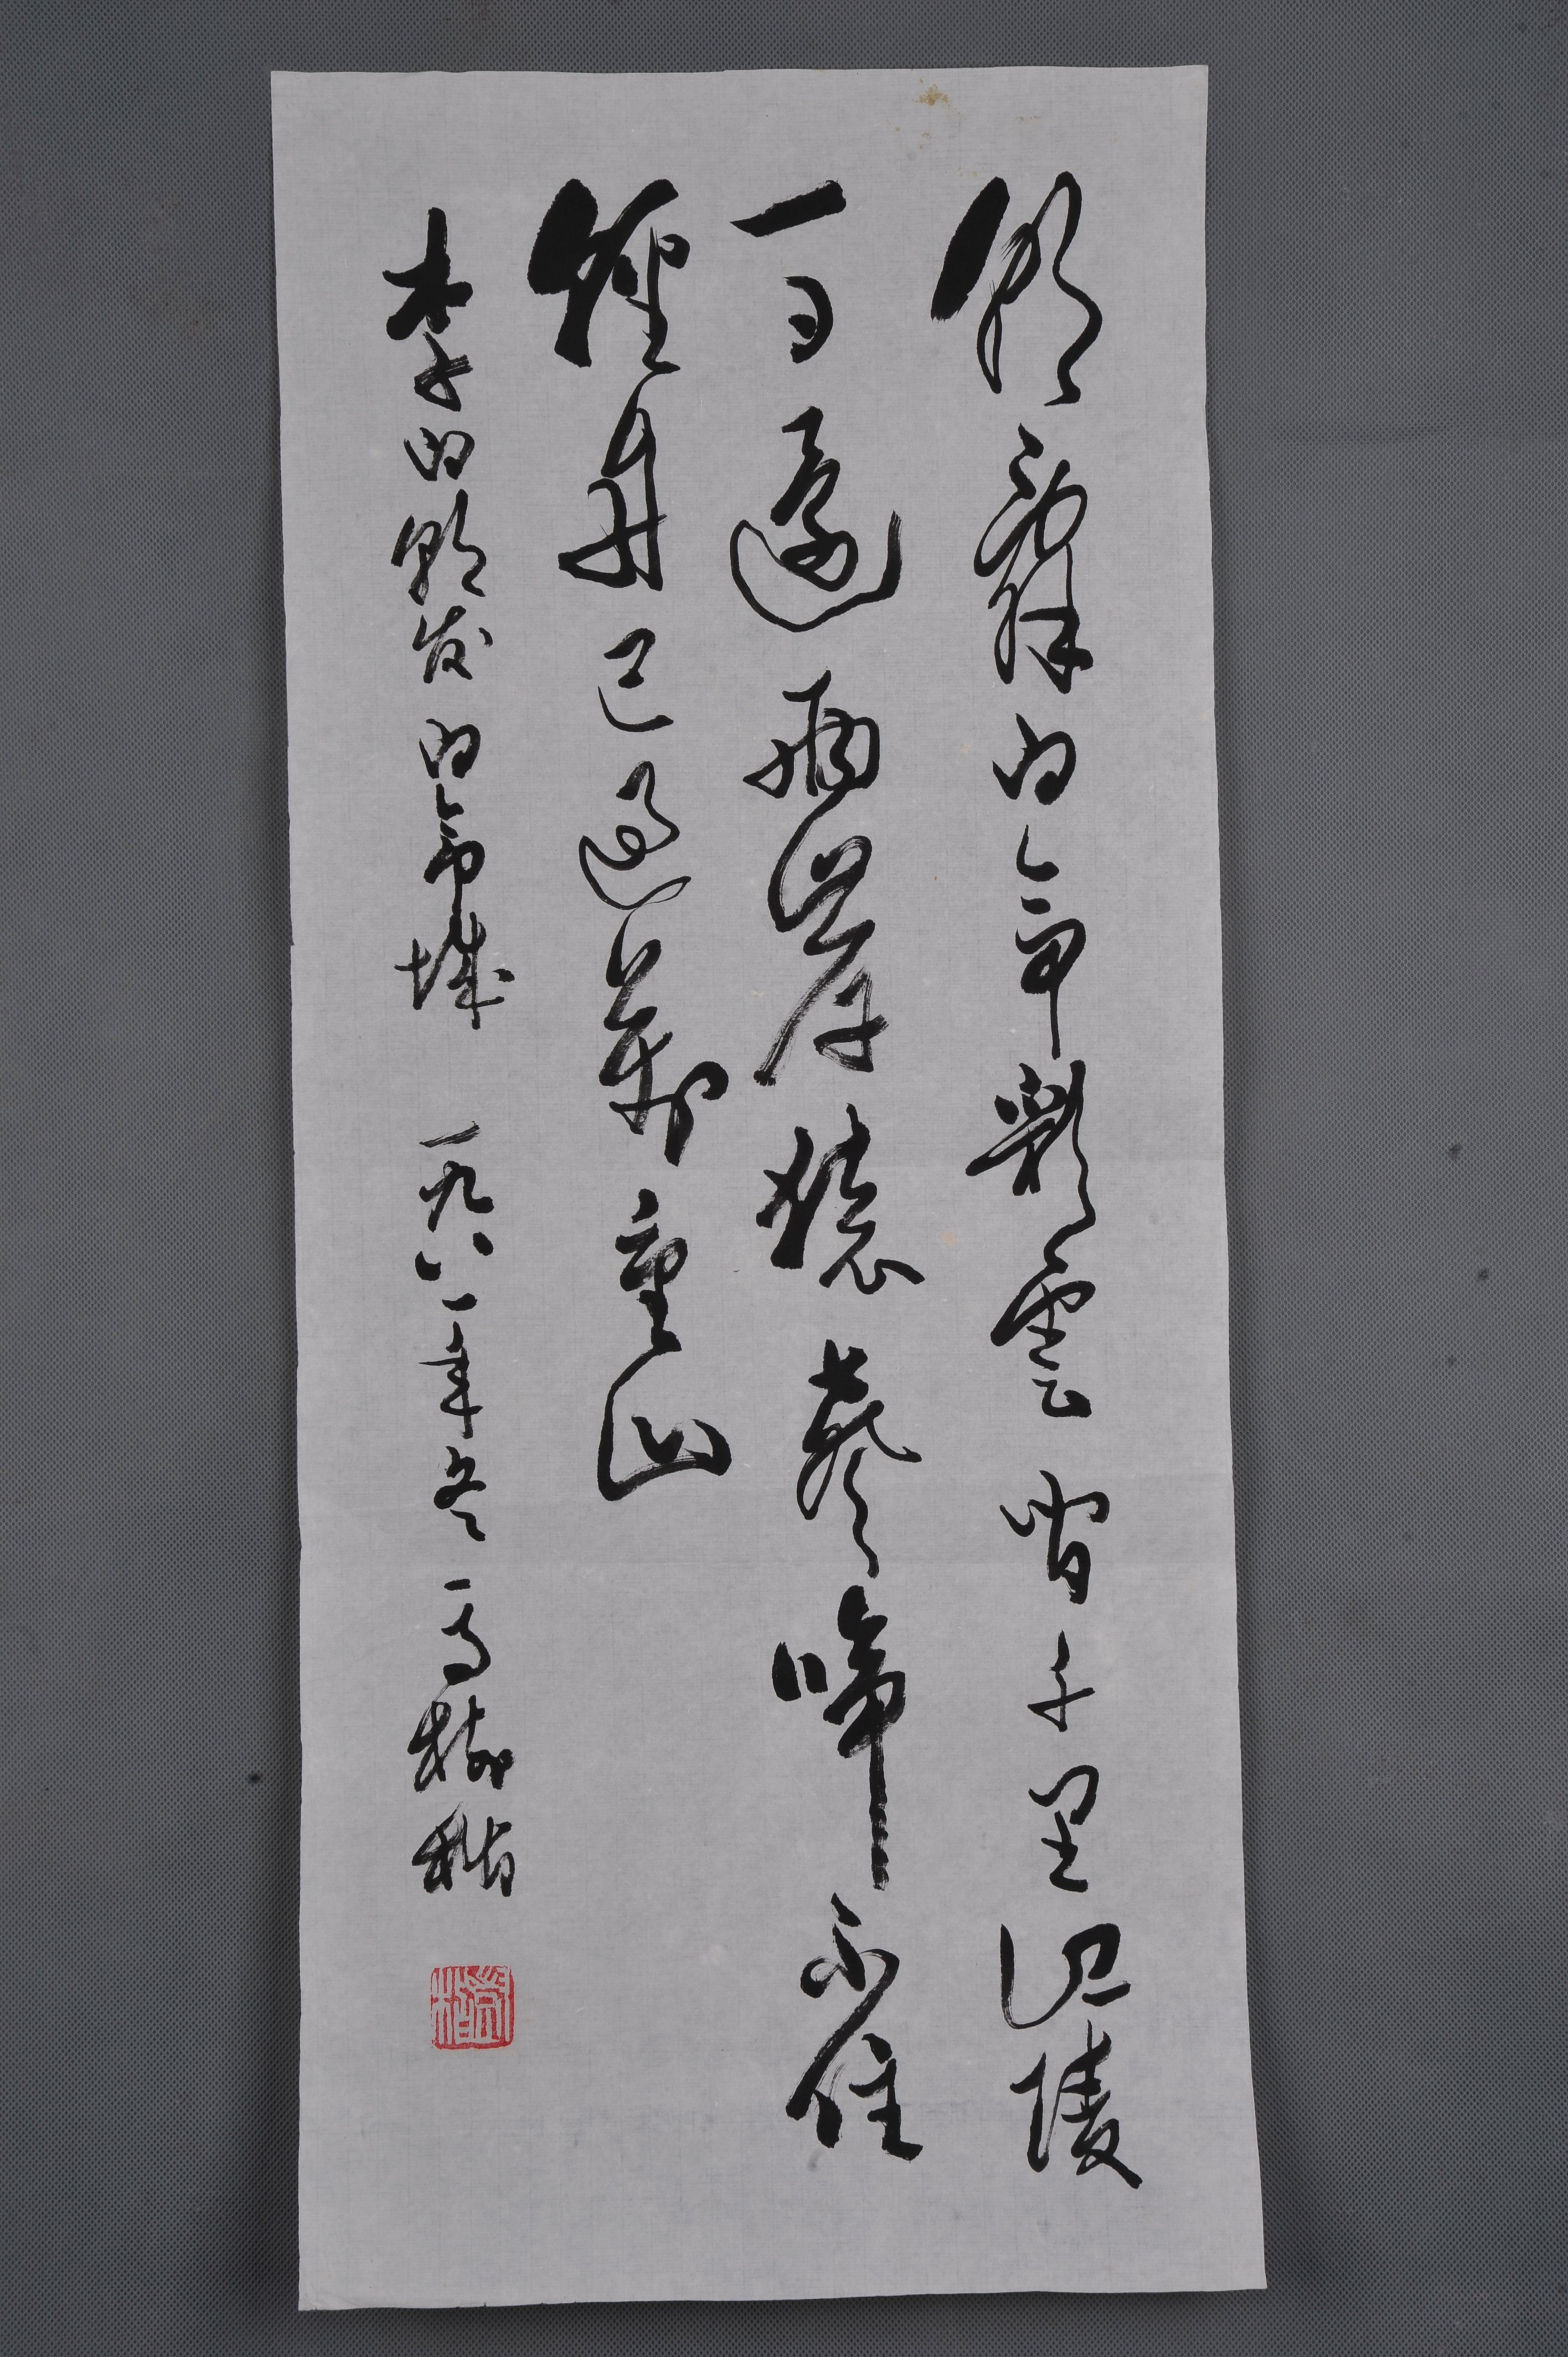 朝辭白帝彩雲間千里江陵
一日還兩岸猿聲啼不住
輕舟已過萬重山
李白朝发白帝城 一九八一年冬